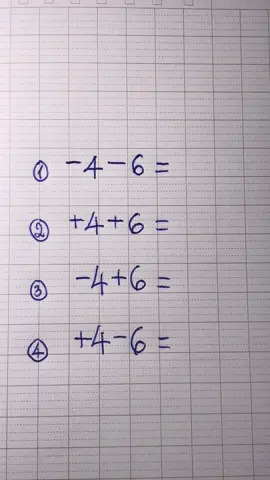 ① -4-6=
② +4+6=
③ -4+6=
④ +4-6=